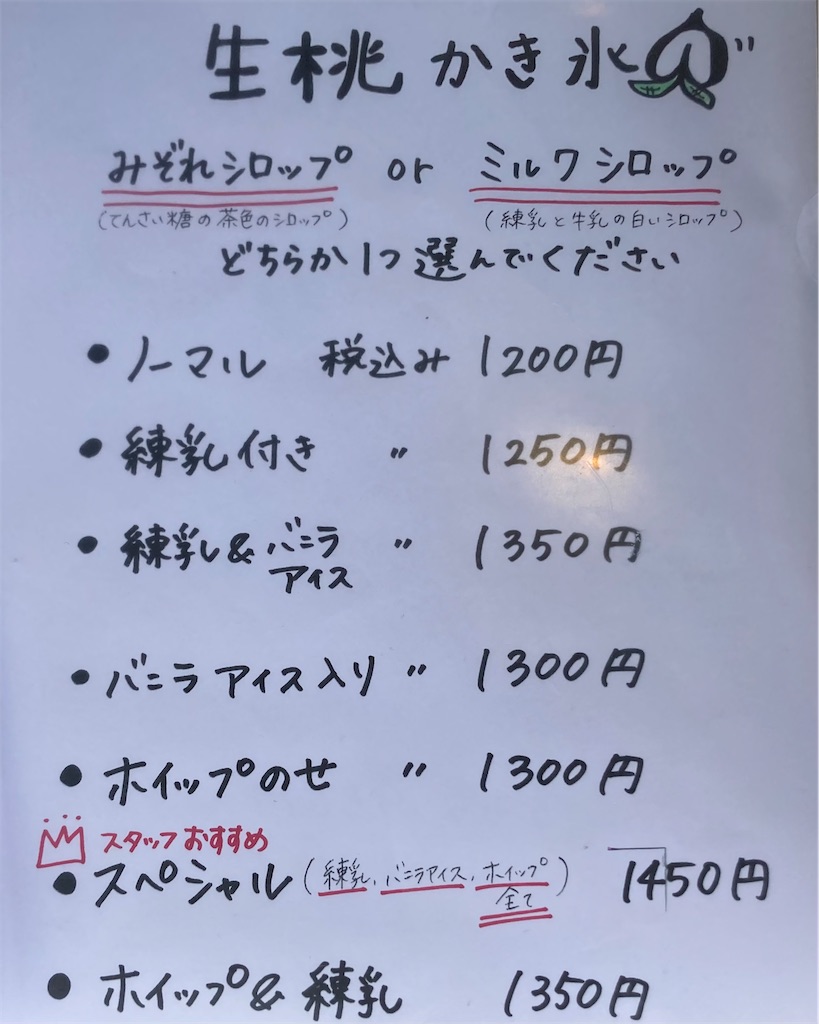 生桃 かき氷
みぞれシロップ or ミルクシロップ
(てんさい糖の茶色のシロップ) (練乳と牛乳の白いシロップ)
どちらか1つ選んでください
• ノーマル 税込み 1200円
• 練乳付き 〃 1250円
• 練乳&バニラアイス 〃 1350円
• バニラアイス入り 〃 1300円
• ホイップのせ 〃 1300円
スタッフおすすめ
• スペシャル (練乳, バニラアイス, ホイップ 全て) 1450円
• ホイップ&練乳 1350円